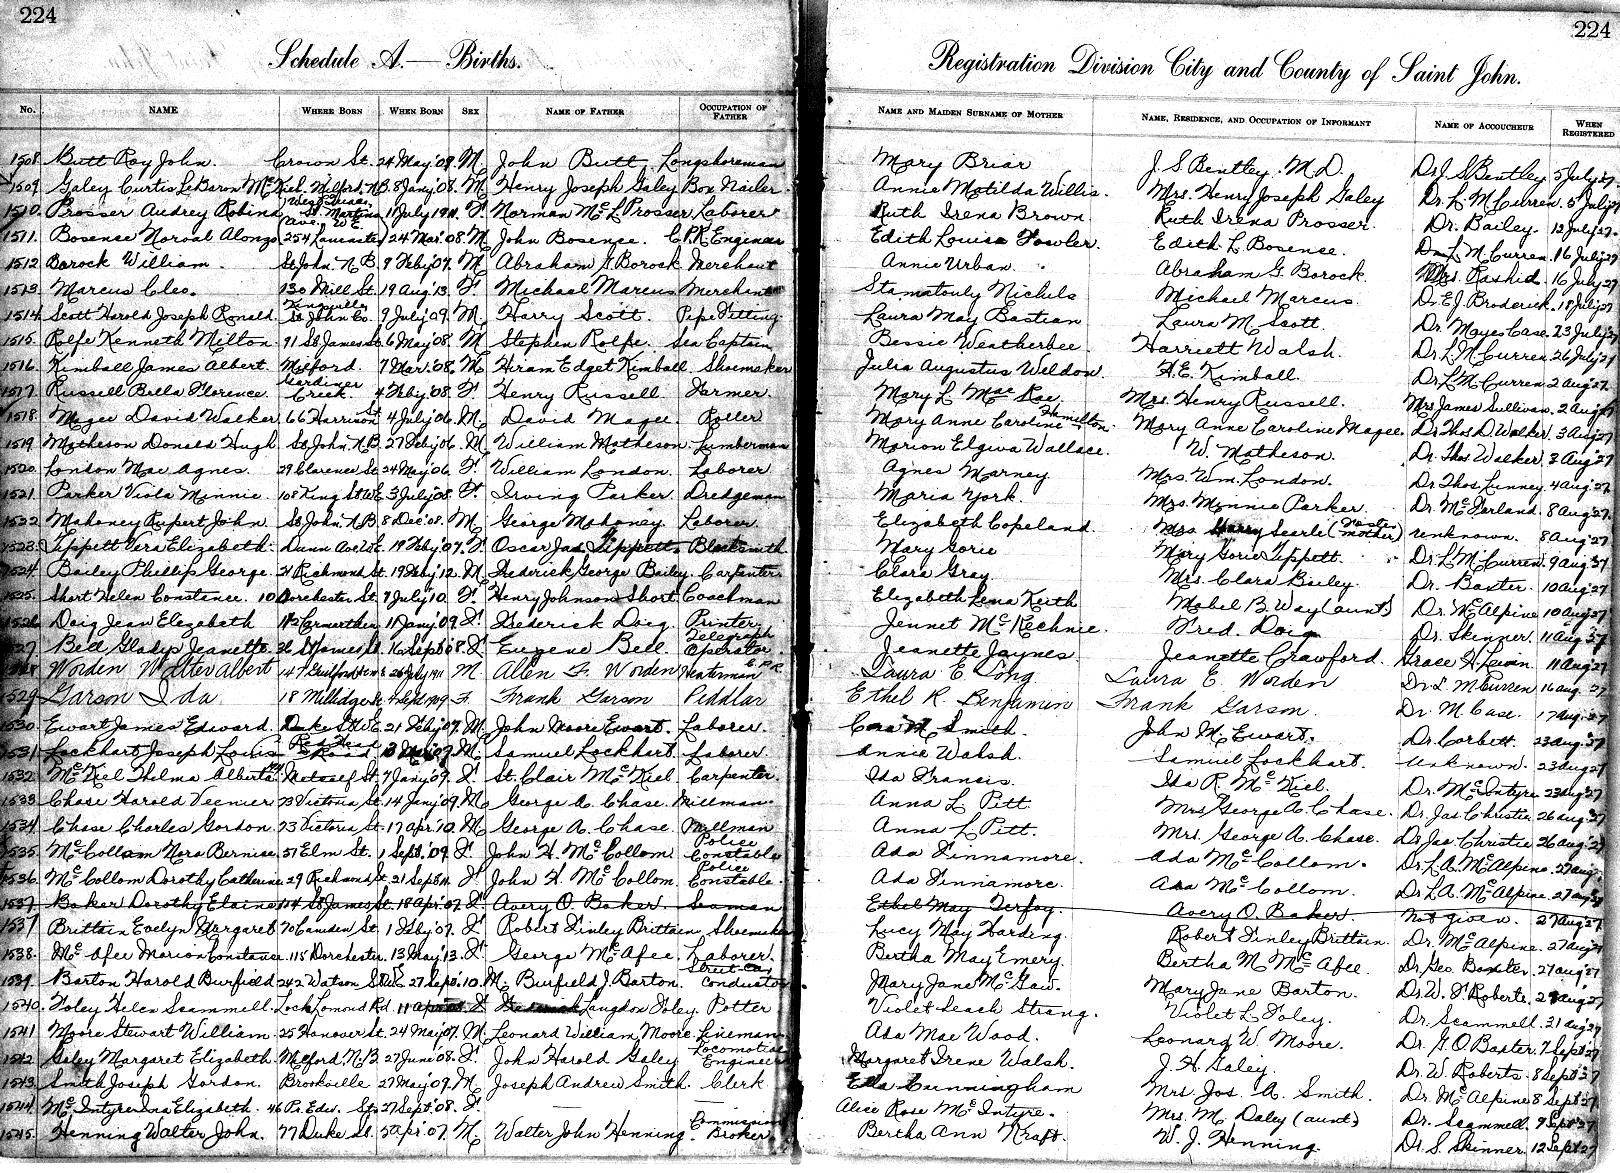 224
Schedule A.— Births.
No. NAME WHERE BORN WHEN BORN SEX NAME OF FATHER OCCUPATION OF FATHER
1508 Butt Roy John. Crown St. 24 May '08 M. John Butt Longshoreman
1509 Galey Curtis LeBaron Milford, N.B. 8 Jany '08. M. Henry Joseph Galey Box Nailer
1510 Prosser Audrey Robina St. Martins 1 July 1911. F. Norman McL Prosser Laborer
1511. Bosence Norval Alonzo 254 Lancaster 24 Mar. 08. M John Bosence. C.P.R. Engineer
1512 Borock William. St John. N.B. 9 Feby '07. M. Abraham G Borock Merchant
1513 Marcus Cleo. 130 Mill St. 19 Aug 13. F. Michael Marcus Merchant
1514 Scott Harold Joseph Ronald. Kingsville St John Co. 9 July '09. M. Harry Scott. Pipe Fitting
1515 Rolfe Kenneth Milton. 91 St James St. 6 May '08. M. Stephen Rolfe. Sea Captain
1516. Kimball James Albert. Milford. 7 Mar. '08. M. Hiram Edget Kimball. Shoemaker
1517 Russell Bella Florence. Gardiner Creek. 4 Feby '08. F. Henry Russell. Farmer.
1518 Magee David Walker. 66 Harrison St. 4 July '06. M. David Magee Roller
1519 Matheson Donald Hugh St John. N.B. 27 Feby '06. M. William Matheson. Lumberman
1520. London Mae Agnes. 29 Clarence St. 24 May '06. F. William London. Laborer
1521 Parker Viola Minnie. 108 King St W.E. 3 July '08. F. Irving Parker. Dredgeman
1522 Mahoney Rupert John St John. N.B. 8 Dec '08. M. George Mahoney. Laborer.
1523. Tippett Vera Elizabeth. Dunn Ave W.E. 19 Feby '07. F. Oscar Jas Tippett Blacksmith
1524 Bailey Phillip George. 21 Richmond St. 19 Feby '12. M. Frederick George Bailey. Carpenter
1525. Short Helen Constance. 10 Dorchester St. 7 July '10. F. Henry Johnson Short. Coachman
1526 Doig Jean Elizabeth 112 Carmarthen 11 Jany '09. F. Frederick Doig. Printer.
1527 Bell Gladys Jeanette. 36 St James St. 16 Sept '08. F. Eugene Bell. Telegraph Operator.
1528 Worden Walter Albert 147 Guilford 26 July 1911 M. Allen F. Worden C.P.R.
1529 Garson Ida 18 Millidge St. 4 Sept 1909 F. Frank Garson Peddlar
1530. Ewart James Edward. Duke St W.E. 21 Feby '07. M. John Moore Ewart. Laborer.
1531. Lockhart Joseph Louis M. Samuel Lockhart. Laborer.
1532. McKiel Thelma Alberta Metcalf St. 7 Jany '09. F. St. Clair McKiel Carpenter.
1533. Chase Harold Veenier 73 Victoria St. 14 Jany '09. M. George A. Chase. Millman.
1534 Chase Charles Gordon. 73 Victoria St. 17 Apr. '10. M. George A. Chase. Millman
1535. McCollom Nora Bernice. 57 Elm St. 1 Sept. '09. F. John H. McCollom Police Constable
1536. McCollom Dorothy Catherine 29 Richmond St. 21 Sept 11. F. John H. McCollom. Police Constable.
1537. Baker Dorothy Elaine 174 St James St. 18 Apr. 07. F. Avery O. Baker Seaman
1537 Brittain Evelyn Margaret 70 Camden St. 1 Feby '07. F. Robert Finley Brittain Shoemaker
1538. McAfee Marion Constance 115 Dorchester. 13 May '13. F. George McAfee. Laborer.
1539. Barton Harold Burfield. 242 Watson St W.E. 27 Sept. '10. M. Burfield J. Barton. Street Car Conductor
1540. Foley Helen Scammell. Loch Lomond Rd. 11 Apr F. Langdon Foley. Potter
1541 Moore Stewart William. 25 Hanover St. 24 May '07. M. Leonard William Moore Lineman
1542 Galey Margaret Elizabeth. Milford. N.B. 27 June '08. F. John Harold Galey Locomotive Engineer
1543. Smith Joseph Gordon. Brookville 27 May '09. M. Joseph Andrew Smith. Clerk
1544 McIntyre Ina Elizabeth. 46 Pr. Edw. St. 27 Sept. '08. F.
1545. Henning Walter John. 77 Duke St. 5 Apr '07. M. Walter John Henning. Commission Broker.
224
Registration Division City and County of Saint John.
NAME AND MAIDEN SURNAME OF MOTHER NAME, RESIDENCE, AND OCCUPATION OF INFORMANT NAME OF ACCOUCHEUR WHEN REGISTERED
Mary Briar J. S. Bentley. M.D. Dr. J. S. Bentley 5 July 27.
Annie Matilda Willis. Mrs. Henry Joseph Galey Dr. L. M. Curren. 5 July 27
Ruth Irena Brown. Ruth Irena Prosser. Dr. Bailey. 12 July 27.
Edith Louise Fowler. Edith L. Bosence. Dr. L. M. Curren. 16 July 27
Annie Urban. Abraham G. Borock. Mrs. Rashid. 16 July 27
Stamatouly Nichels Michael Marcus. Dr. E. J. Broderick. 18 July 27
Laura May Bastian Laura M. Scott. Dr. Mayes Case. 23 July 27
Bessie Weatherbee. Harriett Walsh. Dr. L. M. Curren 26 July 27
Julia Augustus Weldon. H. E. Kimball. Dr. L. M. Curren 2 Aug 27.
Mary L. MacRae. Mrs. Henry Russell. Mrs James Sullivan. 2 Aug 27
Mary Anne Caroline Hamilton. Mary Anne Caroline Magee. Dr Thos D. Walker. 3 Aug 27
Marion Elgiva Wallace. W. Matheson. Dr. Thos Walker. 3 Aug 27
Agnes Marney. Mrs. Wm. London. Dr Thos. Lunney. 4 Aug 27.
Maria York. Mrs. Minnie Parker Dr. McFarland 8 Aug 27.
Elizabeth Copeland. Mrs. Harry Searle (Foster mother) unknown. 8 Aug 27
Mary Gorie Mary Gorie Tippett. Dr. L. M. Curren. 9 Aug 27
Clara Gray. Mrs. Clara Bailey. Dr. Baxter. 10 Aug 27
Elizabeth Lena Keith Mabel B. Way (aunt) Dr. McAlpine. 10 Aug 27
Jennet McKechnie. Fred. Doig Dr. Skinner. 11 Aug 27
Jeanette Jaynes. Jeanette Crawford. Grace H. Lewin. 11 Aug 27
Laura E. Long. Laura E. Worden Dr L. M. Curren 16 Aug. 27
Ethel R. Benjamin Frank Garson. Dr. M. Case. 17 Aug. 27
Cora M. Smith. John M. Ewart. Dr. Corbett. 23 Aug 27
Annie Walsh. Samuel Lockhart. Unknown. 23 Aug 27
Ida Francis. Ida R. McKiel. Dr. McIntyre 23 Aug 27
Anna L. Pitt. Mrs George A. Chase. Dr. Jas Christie 26 Aug 27
Anna L. Pitt. Mrs. George A. Chase. Dr Jas. Christie 26 Aug 27
Ada Finnamore. Ada McCollom. Dr. L. A. McAlpine. 27 Aug 27
Ada Finnamore. Ada McCollom. Dr. L. A. McAlpine. 27 Aug 27
Ethel May Avery O. Baker. Not given. 27 Aug 27
Lucy May Harding. Robert Finley Brittain. Dr. McAlpine. 27 Aug 27
Bertha May Emery. Bertha M. McAfee. Dr. Geo. Baxter. 27 Aug 27
Mary Jane McGaw. Mary Jane Barton. Dr. W. F. Roberts. 29 Aug 27
Violet Leach Strang. Violet L. Foley. Dr. Scammell. 31 Aug 27
Ada Mae Wood. Leonard W. Moore. Dr. G. O. Baxter. 7 Sept 27
Margaret Irene Walsh. J. H. Galey. Dr. W. Roberts. 8 Sept 27
Ella Cunningham Mrs. Jos. A. Smith. Dr. McAlpine 8 Sept 27
Alice Rose McIntyre. Mrs. M. Daley (aunt) Dr. Scammell. 9 Sept 27
Bertha Ann Kraft. W. J. Henning. Dr. S. Skinner. 12 Sept 27